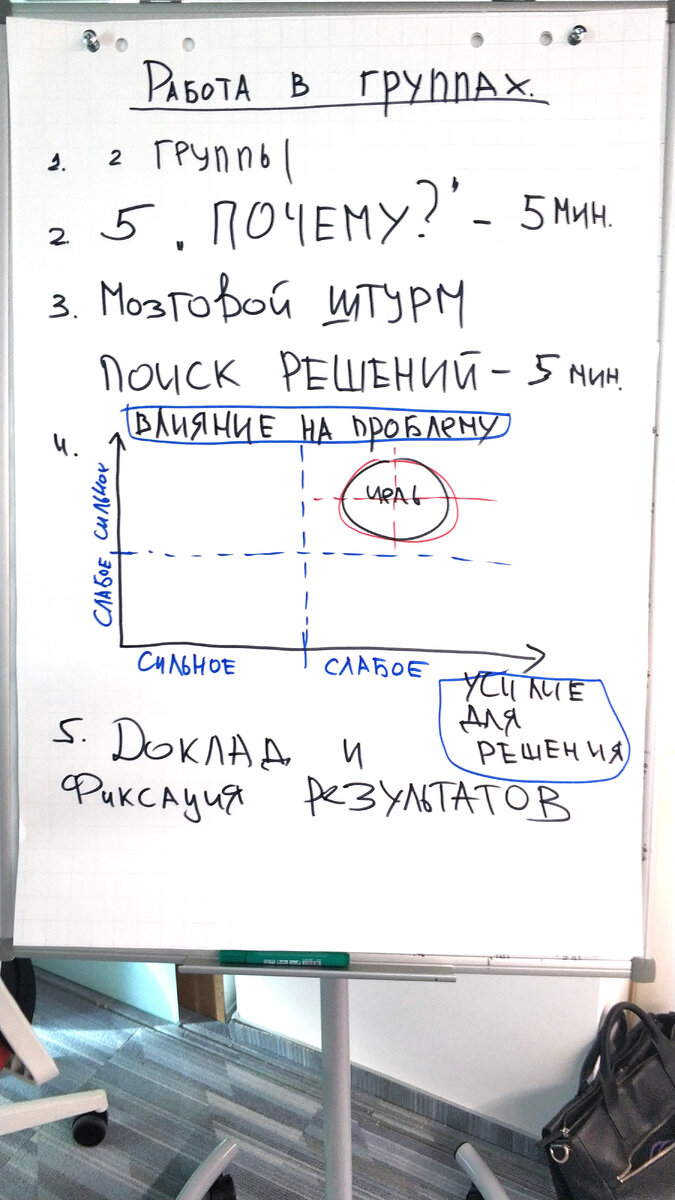 Работа в группах.
1. 2 группы
2. 5 "ПОЧЕМУ?" - 5 мин.
3. Мозговой штурм
поиск решений - 5 мин.
4. ВЛИЯНИЕ НА ПРОБЛЕМУ
СИЛЬНОЕ
ЦЕЛЬ
СЛАБОЕ
СИЛЬНОЕ СЛАБОЕ
УСИЛИЕ
ДЛЯ
РЕШЕНИЯ
5. Доклад и
Фиксация результатов